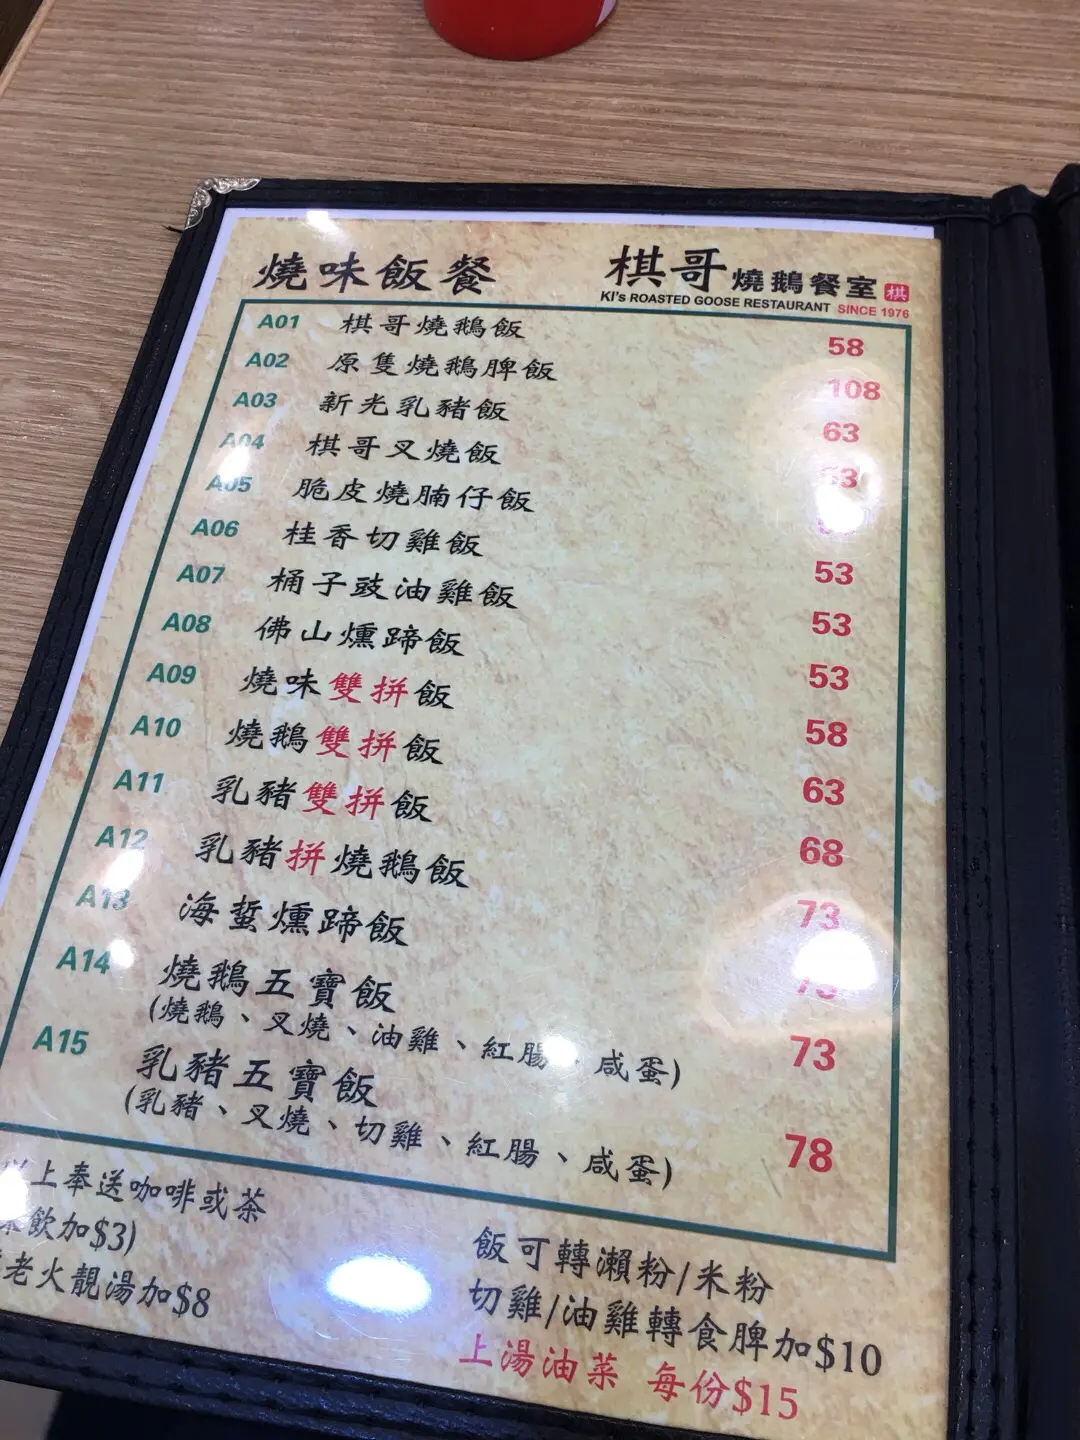 燒味飯餐
棋哥燒鵝餐室 棋
KI's ROASTED GOOSE RESTAURANT SINCE 1976
A01 棋哥燒鵝飯 58
A02 原隻燒鵝脾飯 108
A03 新光乳豬飯 63
A04 棋哥叉燒飯 53
A05 脆皮燒腩仔飯
A06 桂香切雞飯 53
A07 桶子豉油雞飯 53
A08 佛山燻蹄飯 53
A09 燒味雙拼飯 58
A10 燒鵝雙拼飯 63
A11 乳豬雙拼飯 68
A12 乳豬拼燒鵝飯 73
A13 海蜇燻蹄飯 73
A14 燒鵝五寶飯 73
(燒鵝、叉燒、油雞、紅腸、咸蛋)
A15 乳豬五寶飯 78
(乳豬、叉燒、切雞、紅腸、咸蛋)
上奉送咖啡或茶
飲加$3)
老火靚湯加$8
飯可轉瀨粉/米粉
切雞/油雞轉食脾加$10
上湯油菜 每份$15